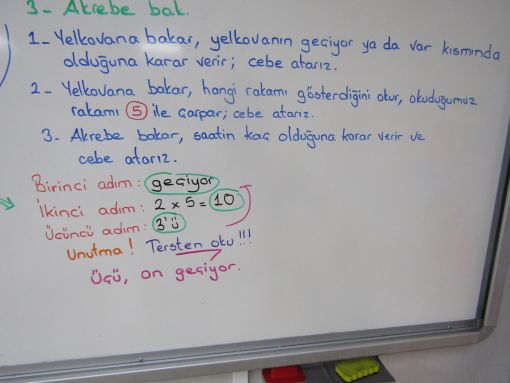 3- Akrebe bak.
1- Yelkovana bakar, yelkovanın geçiyor ya da var kısmında
olduğuna karar verir; cebe atarız.
2- Yelkovana bakar, hangi rakamı gösterdiğini okur, okuduğumuz
rakamı 5 ile çarpar; cebe atarız.
3- Akrebe bakar, saatin kaç olduğuna karar verir ve
cebe atarız.
Birinci adım: geçiyor
İkinci adım: 2 x 5 = 10
Üçüncü adım: 3'ü
Unutma! Tersten oku!!!
Üçü, on geçiyor.